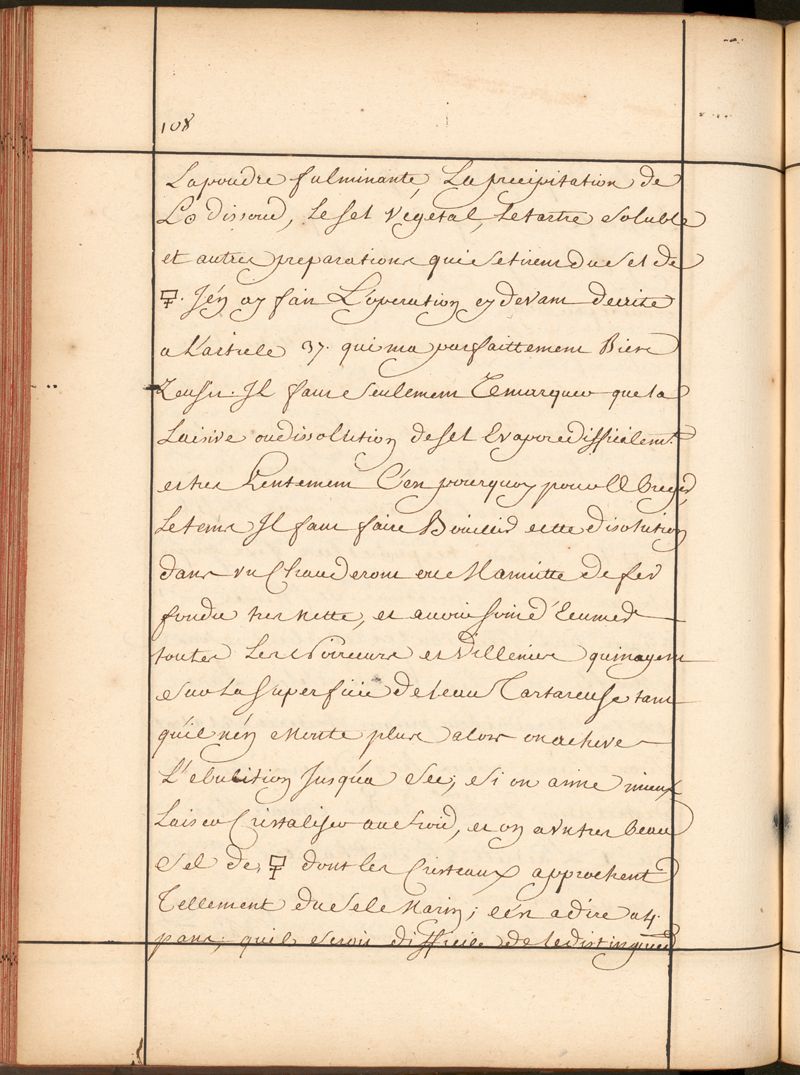 108
La poudre fulminante, La precipitation de
L'☉ dissoud, Le sel vegetal, Le tartre soluble
et autres preparations qui se tirent du sel de
🜿. J'en ay fait L'operation cy devant decrite
a L'article 37. qui m'a parfaittement Bien
Reussi. Il faut seulement Remarquer que la
Laisive ou dissolution de sel Evapore difficilemt.
et tres Lentement C'est pourquoy pour abreger
Le tems Il faut faire Boüillir cette disolution
dans un Chauderont ou Marmitte de fer
fondu tres nette, et avoir soin d'Ecumer
toutes Les Noirceurs et Villenies qui nagent
sur La superficie de l'eau Tartareuse tant
qu'il n'en Monte plus alors on acheve
L'ebulition Jusqu'a sec; si on aime mieux
Laisser Cristaliser au froid, et on a un tres beau
Sel de 🜿 dont les Cristeaux approchent
Tellement du sel Marin; c'est a dire a 4.
pans; qu'il seroit difficile de le distinguer